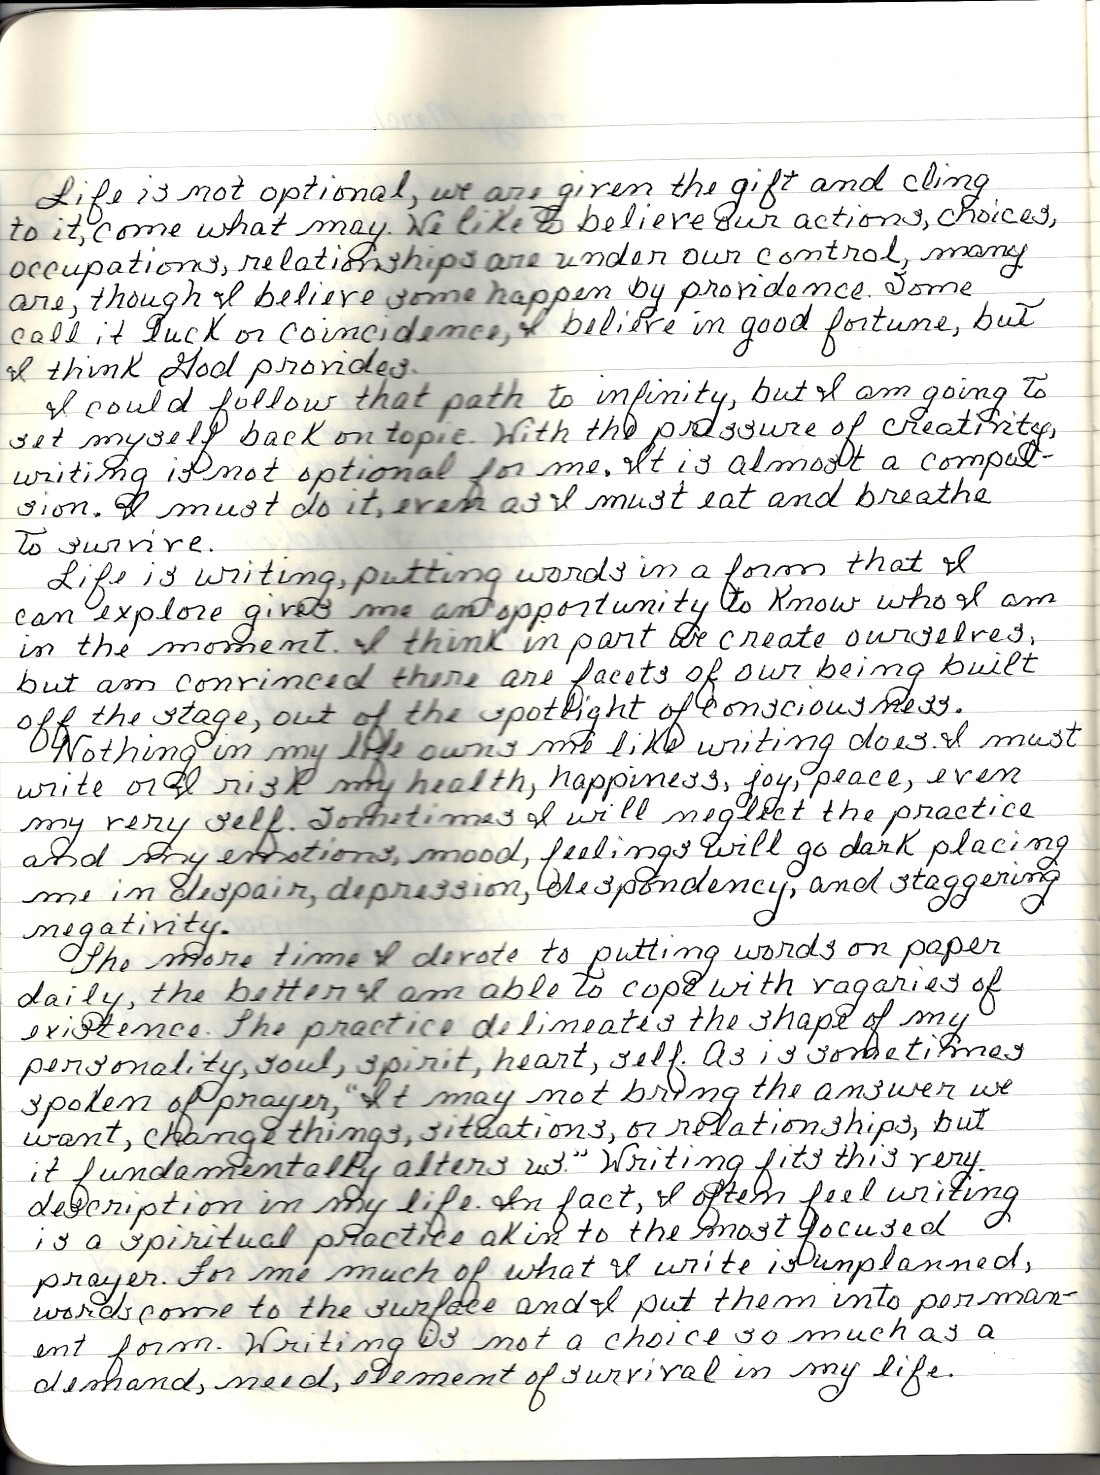 Life is not optional, we are given the gift and cling
to it, come what may. We like to believe our actions, choices,
occupations, relationships are under our control, many
are, though I believe some happen by providence. Some
call it luck or coincidence, I believe in good fortune, but
I think God provides.
I could follow that path to infinity, but I am going to
set myself back on topic. With the pressure of creativity,
writing is not optional for me. It is almost a compul-
sion. I must do it, even as I must eat and breathe
to survive.
Life is writing, putting words in a form that I
can explore gives me an opportunity to know who I am
in the moment. I think in part we create ourselves,
but am convinced there are facets of our being built
off the stage, out of the spotlight of consciousness.
Nothing in my life owns me like writing does. I must
write or I risk my health, happiness, joy, peace, even
my very self. Sometimes I will neglect the practice
and my emotions, mood, feelings will go dark placing
me in despair, depression, despondency, and staggering
negativity.
The more time I devote to putting words on paper
daily, the better I am able to cope with vagaries of
existence. The practice delineates the shape of my
personality, soul, spirit, heart, self. As is sometimes
spoken of prayer, "It may not bring the answer we
want, change things, situations, or relationships, but
it fundamentally alters us." Writing fits this very
description in my life. In fact, I often feel writing
is a spiritual practice akin to the most focused
prayer. For me much of what I write is unplanned,
words come to the surface and I put them into perman-
ent form. Writing is not a choice so much as a
demand, need, element of survival in my life.